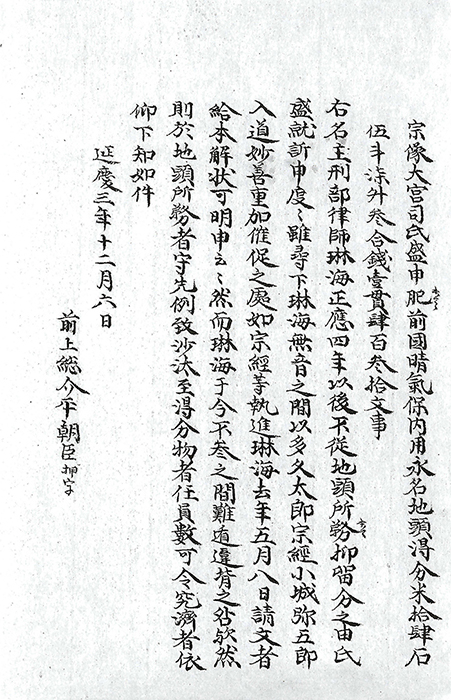 宗像大宮司氏盛申肥前國晴氣保内用永名地頭得分米拾肆石
伍斗柒升叄合錢壹貫肆百叄拾文事
右名主刑部律師琳海正應四年以後不從地頭所務抑留分之由氏
盛就訴申度〻雖尋下琳海無音之間以多久太郎宗經小城弥五郎
入道妙善重加催促之處如宗經等執進琳海去年五月八日請文者
給本解状可明申云〻然而琳海于今不叄之間難遁違背之咎欤然
則於地頭所務者守先例致沙汰至得分物者任員數可令究濟者依
仰下知如件
延慶三年十二月六日
前上総介平朝臣 押字